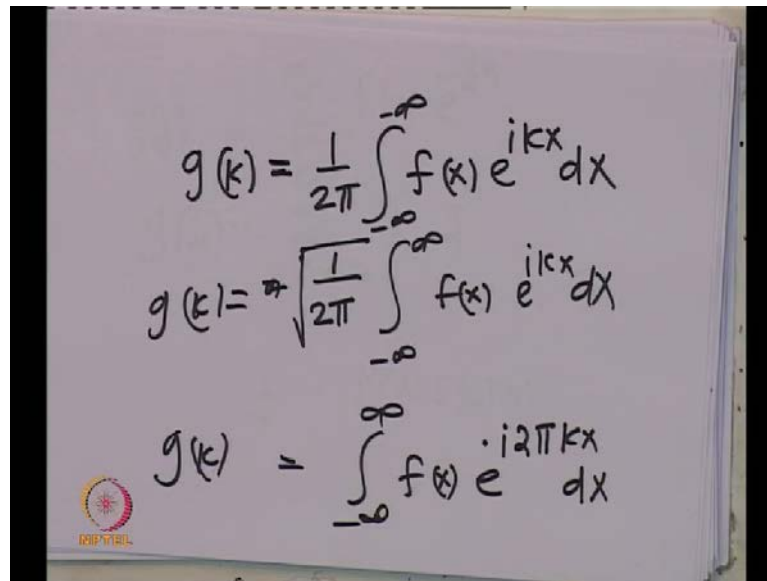 g(k) = 1/2π ∫_{-∞}^{-∞} f(x) e^{ikx} dx
g(k) = √(1/2π) ∫_{-∞}^{∞} f(x) e^{ikx} dx
g(k) = ∫_{-∞}^{∞} f(x) e^{i2πkx} dx
NPTEL